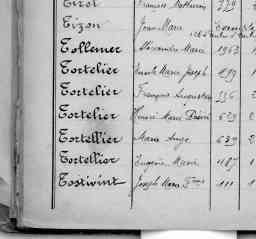 Tirot Francis Mathurin 379
Tizon Jean Marie
Tollemer Alexandre Marie 1963 1
Tortelier Marie Joseph 199 1
Tortelier François Augustin 336 2
Tortelier Henri Marie Désiré 629 2
Tortellier Marie Ange 639 2
Tortellier Eugène Marie 1187 1
Tostivint Joseph Marie Fçois 111 1